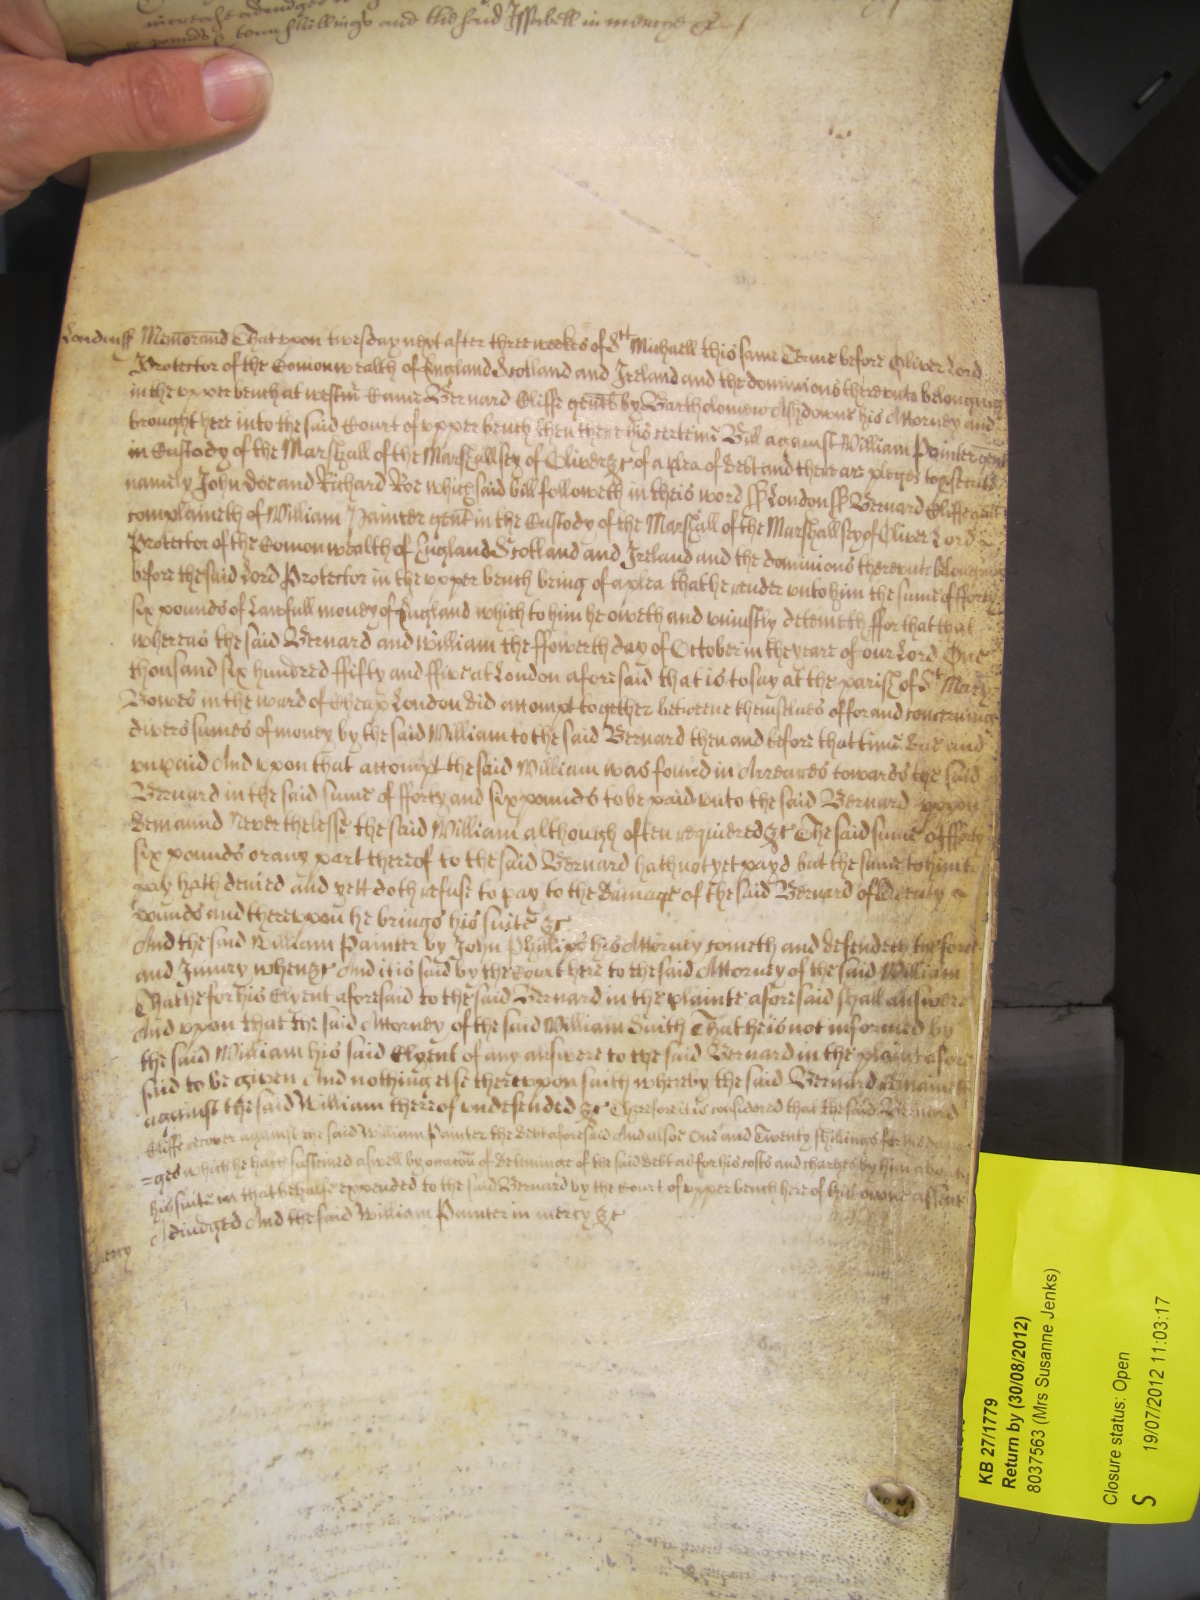 increase adiudged
pounds & tenn shillings and the said Issabell in mercye &c
Londonss Memorand That upon twesday next after three weekes of St Michaell this same Terme before Oliver Lord
Protector of the Comonwealth of England Scotland and Ireland and the dominions thereunto belonging
in the upper bench at westmr Came Bernard Cliffe gent by Bartholomew Ashdowne his Attorney and
brought here into the said Court of upper bench then there his certeine Bill against William Painter gent
in Custody of the Marshall of the Marshallsey of Oliver &c of a plea of debt and there are pleges to prosecute
namely John Doe and Richard Roe which said bill followeth in theis word ss Londonss Bernard Cliffe gent
complaineth of William Painter gent in the Custody of the Marshall of the Marshallsey of Oliver Lord
Protector of the Comonwealth of England Scotland and Ireland and the dominions thereunto belonging
before the said Lord Protector in the upper bench being of a plea that he render unto him the sume of fforty
six pounds of Lawfull money of England which to him he oweth and uniustly deteineth ffor that that
whereas the said Bernard and William the ffowerth day of October in the yeare of our Lord One
thousand six hundred ffifty and ffive at London aforesaid that is to say at the parish of St Mary
Bowes in the ward of Cheap London did attompt together betweene themselves of for and concerning
divers sumes of money by the said William to the said Bernard then and before that time due and
unpaid And upon that attompt the said William was found in Arreares towards the said
Bernard in the said sume of fforty and six pounds to be paid unto the said Bernard uppon
demaund Neverthelesse the said William although often requiered &c The said sume of fforty
six pounds or any part thereof to the said Bernard hath not yet payd but the same to him to
pay hath denied and yett doth refuse to pay to the damage of the said Bernard of Twenty
pounds and thereupon he brings his suite &c
And the said William Painter by John Phillips his Attorney cometh and defendeth the force
and Iniury when &c And it is said by the Court here to the said Attorney of the said William
That he for his Clyent aforesaid to the said Bernard in the plainte aforesaid shall answere
And upon that the said Attorney of the said William Saith That he is not informed by
the said William his said Clyent of any answere to the said Bernard in the plaint afore
said to be given And nothing else thereupon saith whereby the said Bernard remaineth
against the said William thereof undefended &c Therefore it is considered that the said Bernard
Cliffe recover against the said William Painter the debt aforesaid And alsoe One and Twenty shillings for his dama
=ges which he hath susteined aswell by occacon of deteininge of the said debt as for his costs and charges by him about
his suite in that behalfe expended to the said Bernard by the Court of upper bench here of his owne assent
Adiudged And the said William Painter in mercy &c
mercy
KB 27/1779
Return by (30/08/2012)
8037563 (Mrs Susanne Jenks)
Closure status: Open
S 19/07/2012 11:03:17